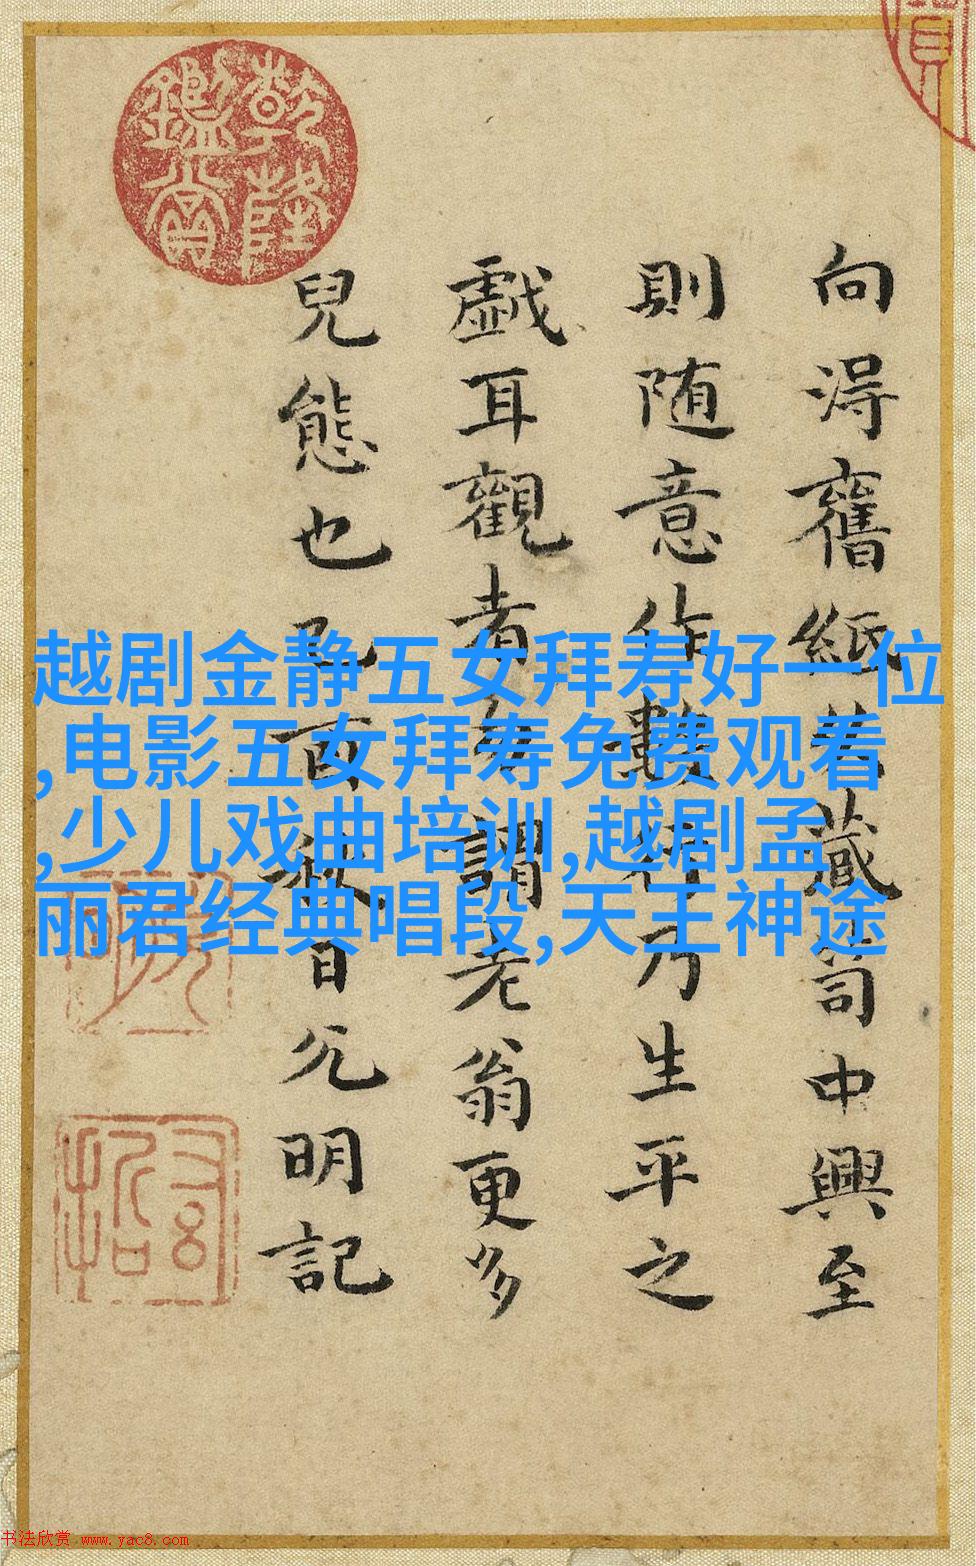 乾隆鑑賞
向淂舊紙藏笥中興至
則随意作數行乃生平之
戲耳觀者勿謂老翁更多
兒態也酉秋日允明記
越剧金静五女拜寿好一位
,电影五女拜寿免费观看
,少儿戏曲培训,越剧孟
丽君经典唱段,天王神途
书法欣赏 www.yac8.com